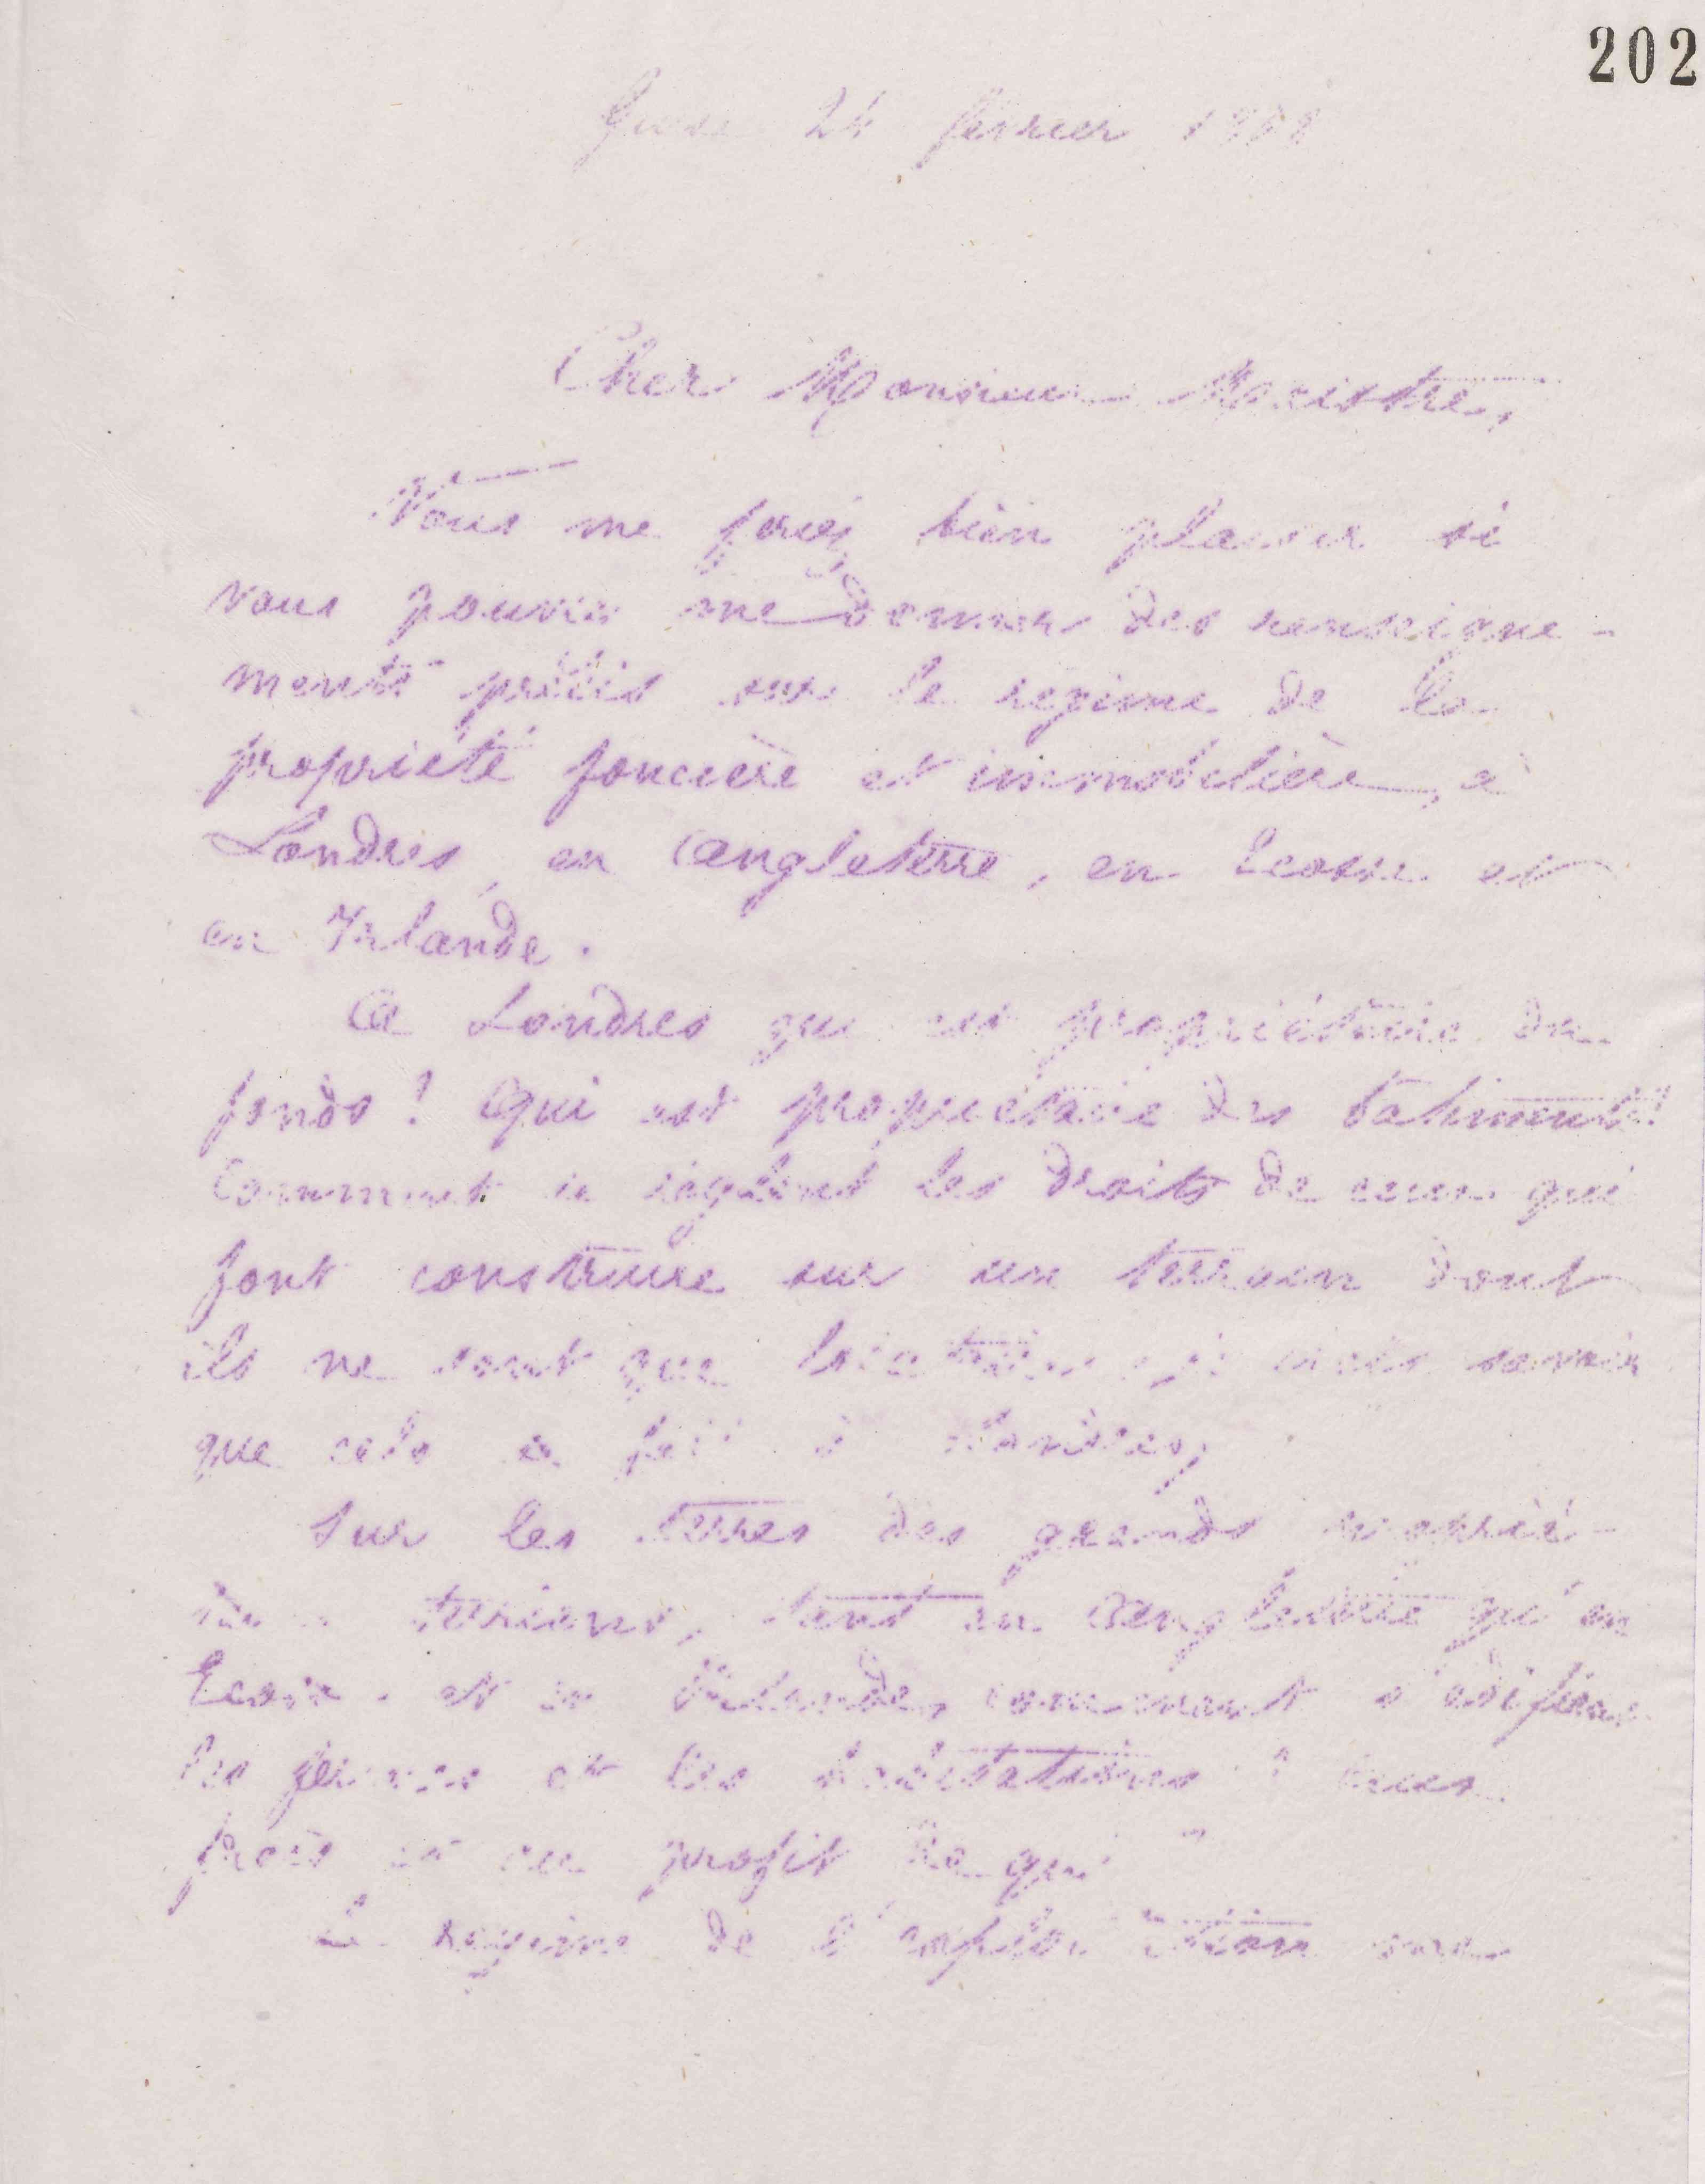 202
24 février
Cher Monsieur
Vous me ferez bien plaisir si
vous pouviez me donner des renseigne-
ments précis sur le regime de la
propriété foncière et immobilière, à
Londres, en Angleterre, en Ecosse et
en Irlande.
A Londres qui est propriétaire du
fonds? Qui est propriétaire des bâtiments?
Comment se règlent les droits de ceux qui
font construire sur un terrain dont
ils ne sont que locataires
que cela a à Londres,
Sur les terres des grands proprié-
terriens, tant en Angleterre qu'en
Ecosse et en Irlande, comment s'édifient
les fermes et les habitations?
frais et au profit de qui
Le regime de